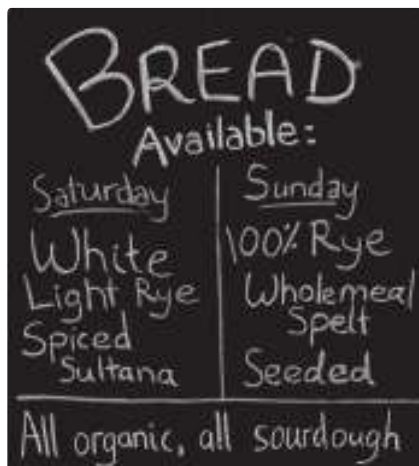 BREAD
Available:
Saturday
White
Light Rye
Spiced
Sultana
Sunday
100% Rye
Wholemeal
Spelt
Seeded
All organic, all sourdough